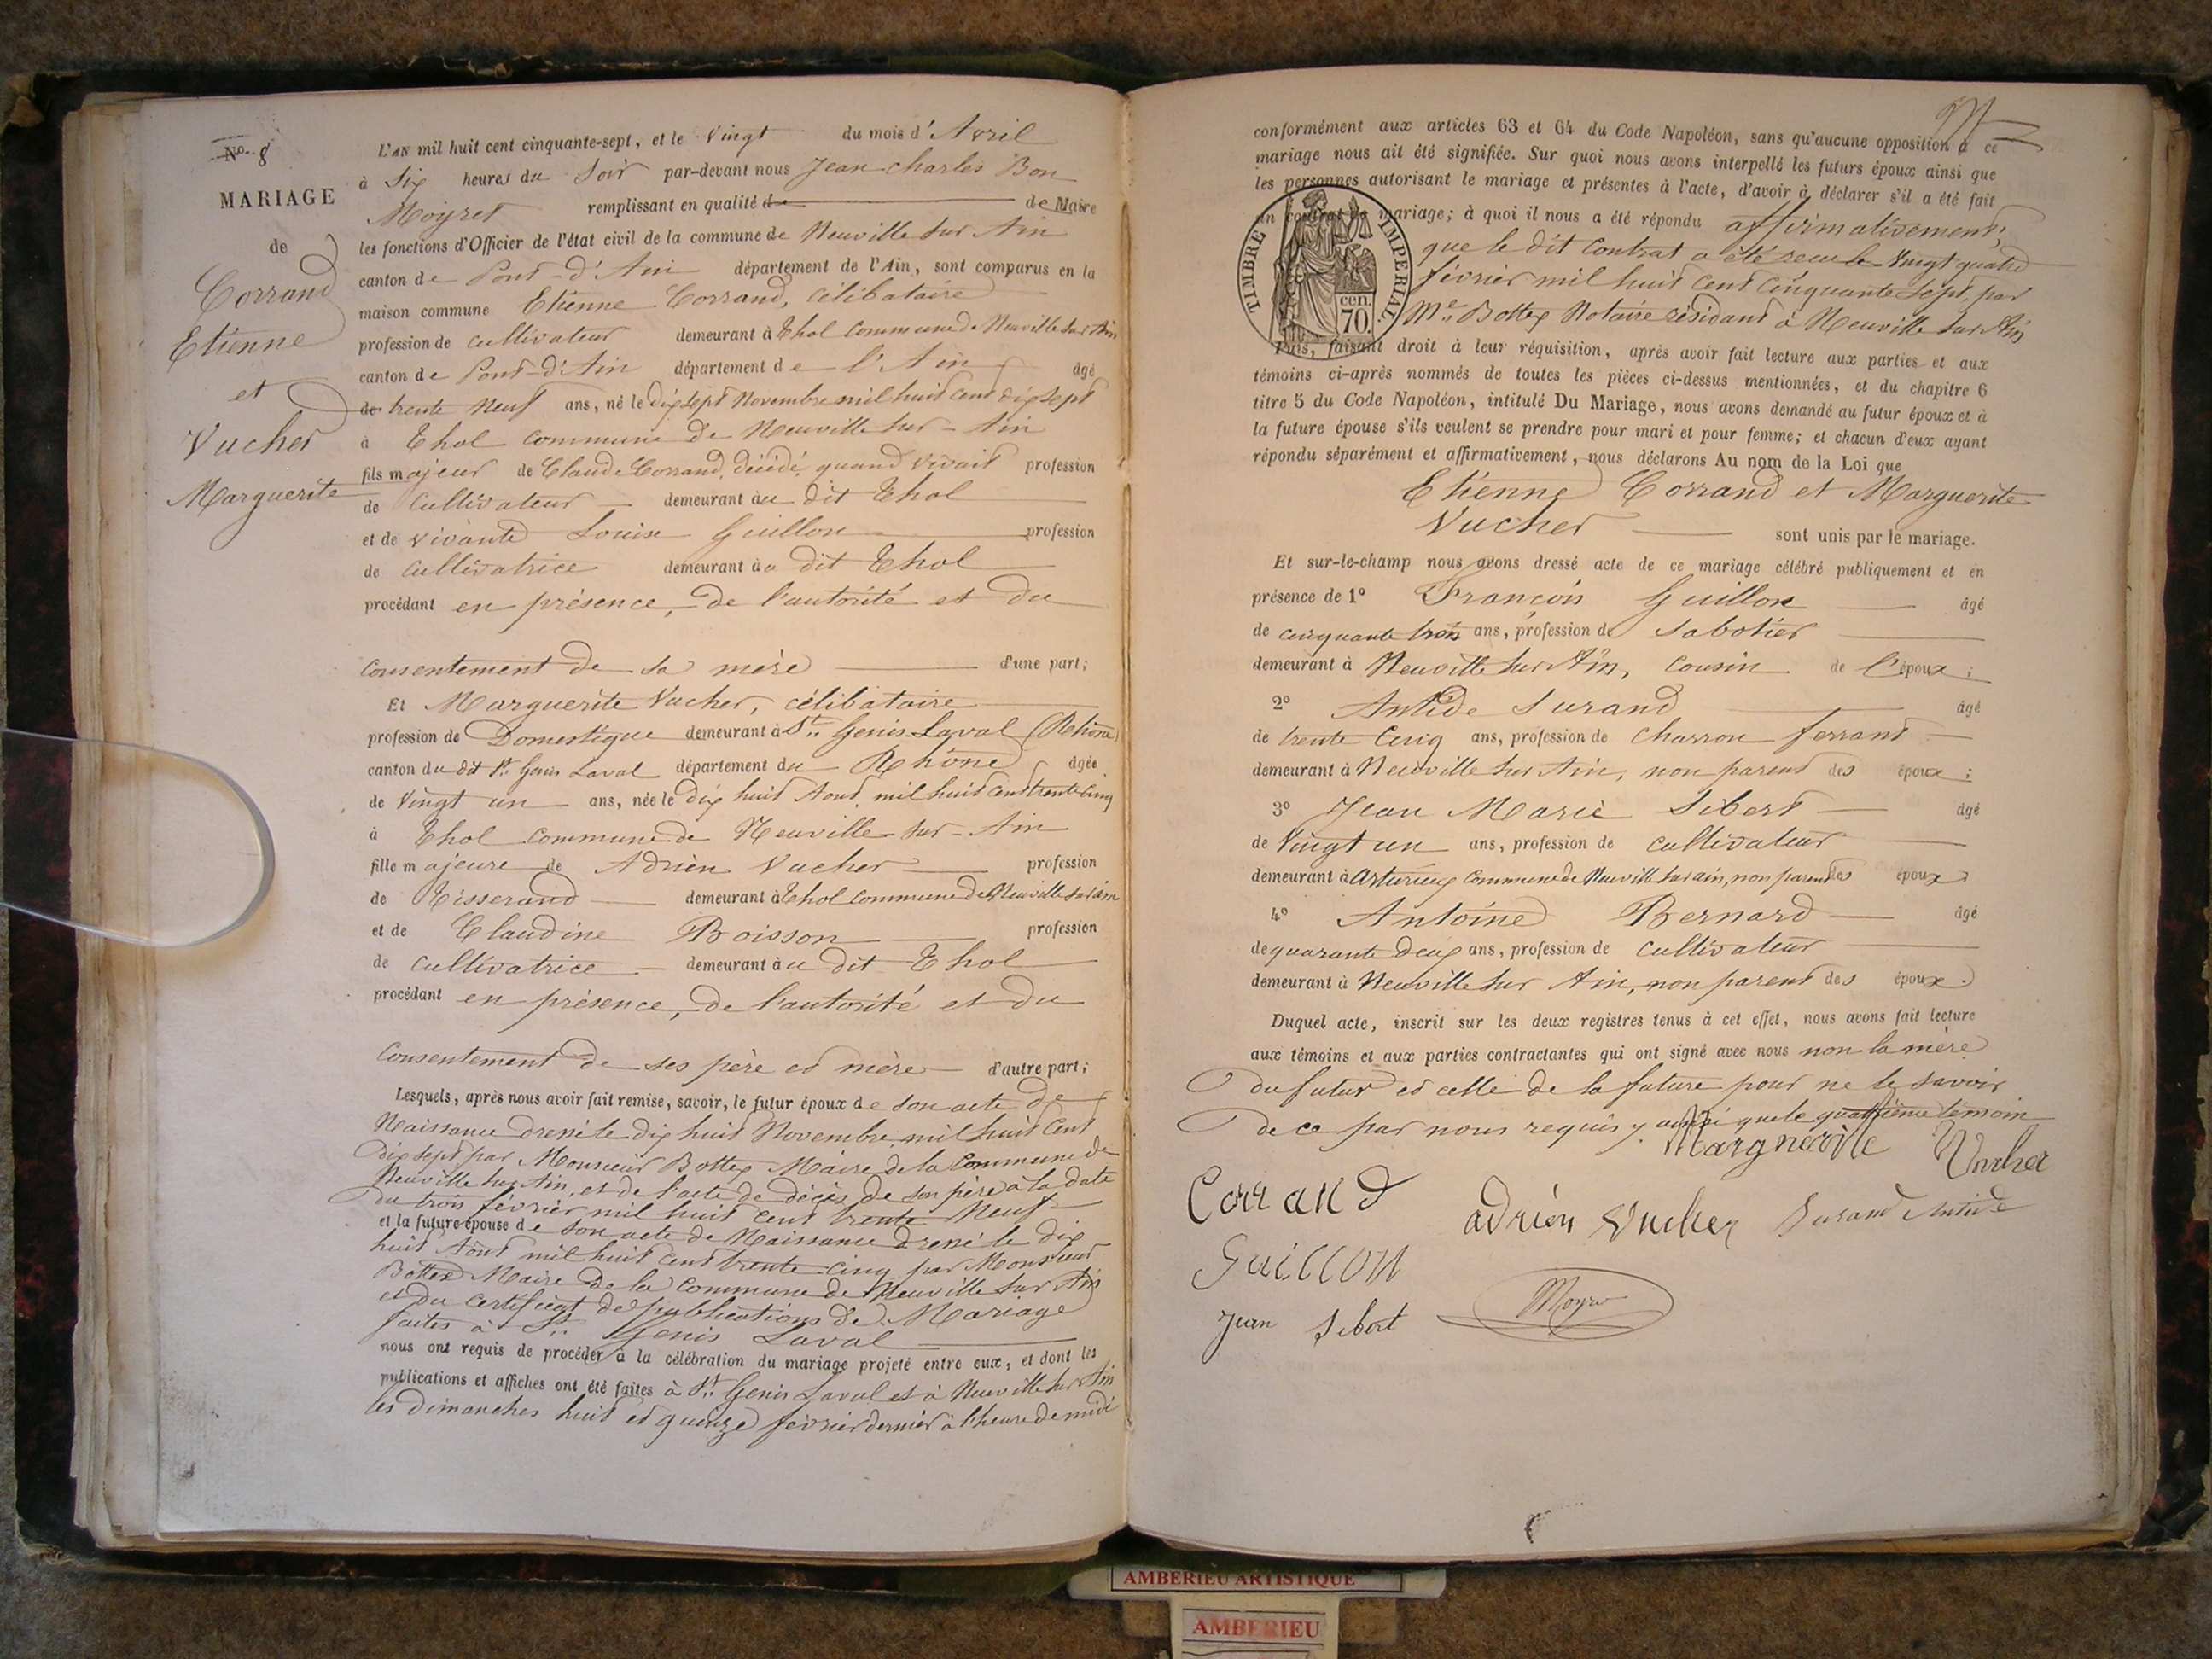 N° 8
MARIAGE
de
Corrand
Etienne
et
Vucher
Marguerite
L'AN mil huit cent cinquante-sept, et le Vingt du mois d'Avril
à Six heures du Soir par-devant nous Jean Charles Bon
Moyret remplissant en qualité de de Maire
les fonctions d'Officier de l'état civil de la commune de Neuville sur Ain
canton de Pont-d'Ain département de l'Ain, sont comparus en la
maison commune Etienne Corrand, célibataire
profession de cultivateur demeurant à Thol Commune de Neuville sur Ain
canton de Pont-d'Ain département de l'Ain âgé
de trente neuf ans, né le dix sept Novembre mil huit cent dix sept
à Thol commune de Neuville sur-Ain
fils majeur de Claude Corrand, décédé, quand vivait profession
de Cultivateur demeurant au dit Thol
et de vivante Louise Guillon profession
de cultivatrice demeurant au dit Thol
procédant en présence, de l'autorité et du
consentement de sa mère d'une part;
Et Marguerite Vucher, célibataire
profession de Domestique demeurant à St Genis Laval (Rhône)
canton du dit St Genis Laval département du Rhône âgée
de Vingt un ans, née le dix huit Aout mil huit cent trente cinq
à Thol commune de Neuville-sur-Ain
fille majeure de Adrien Vucher profession
de Tisserand demeurant à Thol commune de Neuville sur ain
et de Claudine Boisson profession
de cultivatrice demeurant au dit Thol
procédant en présence, de l'autorité et du
Consentement de ses père et mère d'autre part;
Lesquels, après nous avoir fait remise, savoir, le futur époux de son acte de
Naissance dressé le dix huit Novembre mil huit Cent
dix sept par Monsieur Bottex Maire de la Commune de
Neuville sur Ain, et de l'acte de décès de son père à la date
du trois février mil huit cent trente Neuf
et la future épouse de son acte de Naissance dressé le dix
huit Aout mil huit cent trente-cinq par Monsieur
Bottex Maire de la Commune de Neuville sur Ain
et du certificat de publications de Mariage
faites à St Genis Laval
nous ont requis de procéder à la célébration du mariage projeté entre eux, et dont les
publications et affiches ont été faites à St Genis Laval et à Neuville sur Ain
les dimanches huit et quinze février dernier à l'heure de midi
conformément aux articles 63 et 64 du Code Napoléon, sans qu'aucune opposition à ce
mariage nous ait été signifiée. Sur quoi nous avons interpellé les futurs époux ainsi que
les personnes autorisant le mariage et présentes à l'acte, d'avoir à déclarer s'il a été fait
un contrat de mariage; à quoi il nous a été répondu affirmativement,
que le dit Contrat a été reçu le Vingt quatre
février mil huit cent Cinquante sept, par
Me Bottex Notaire résidant à Neuville sur Ain
TIMBRE IMPERIAL.
cen.
70.
Puis, faisant droit à leur réquisition, après avoir fait lecture aux parties et aux
témoins ci-après nommés de toutes les pièces ci-dessus mentionnées, et du chapitre 6
titre 5 du Code Napoléon, intitulé Du Mariage, nous avons demandé au futur époux et à
la future épouse s'ils veulent se prendre pour mari et pour femme; et chacun d'eux ayant
répondu séparément et affirmativement, nous déclarons Au nom de la Loi que
Etienne Corrand et Marguerite
Vucher sont unis par le mariage.
Et sur-le-champ nous avons dressé acte de ce mariage célébré publiquement et en
présence de 1° François Guillon âgé
de cinquante trois ans, profession de Sabotier
demeurant à Neuville sur Ain, Cousin de l'époux;
2° Antide Surand âgé
de trente Cinq ans, profession de Charron ferrant
demeurant à Neuville sur Ain, non parent des époux;
3° Jean Marie Sibert âgé
de Vingt un ans, profession de cultivateur
demeurant à Arturieux Commune de Neuville sur ain, non parent des époux
4° Antoine Bernard âgé
de quarante Deux ans, profession de Cultivateur
demeurant à Neuville sur Ain, non parent des époux.
Duquel acte, inscrit sur les deux registres tenus à cet effet, nous avons fait lecture
aux témoins et aux parties contractantes qui ont signé avec nous non la mère
du futur et celle de la future pour ne le savoir
de ce par nous requis y ainsi que le quatrième témoin
Marguerite Vucher
Corrand
adrien Vucher Surand Antide
Guillon
Jean Sibert Moyret
AMBERIEU ARTISTIQUE
AMBERIEU